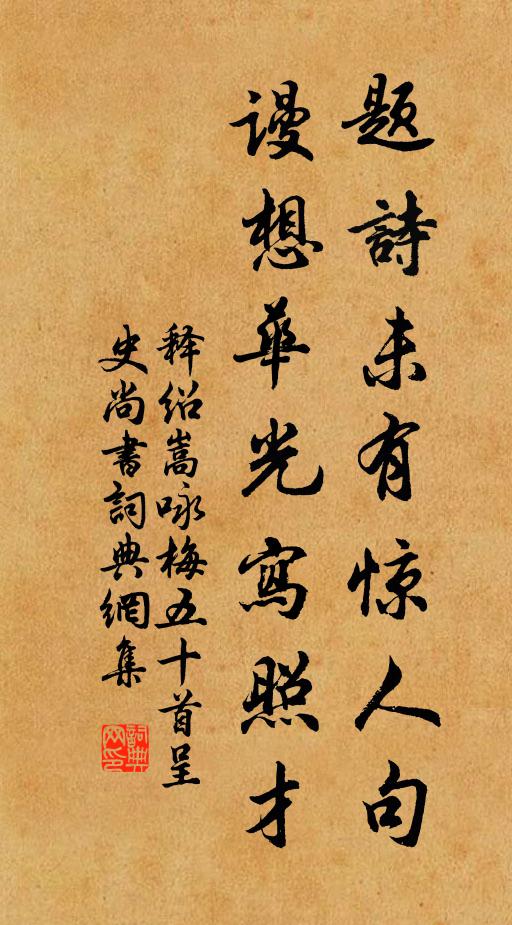 题詩未有惊人句
謾想華光寫照才
释绍嵩咏梅五十首呈
史尚書詞典網集
詞典网印